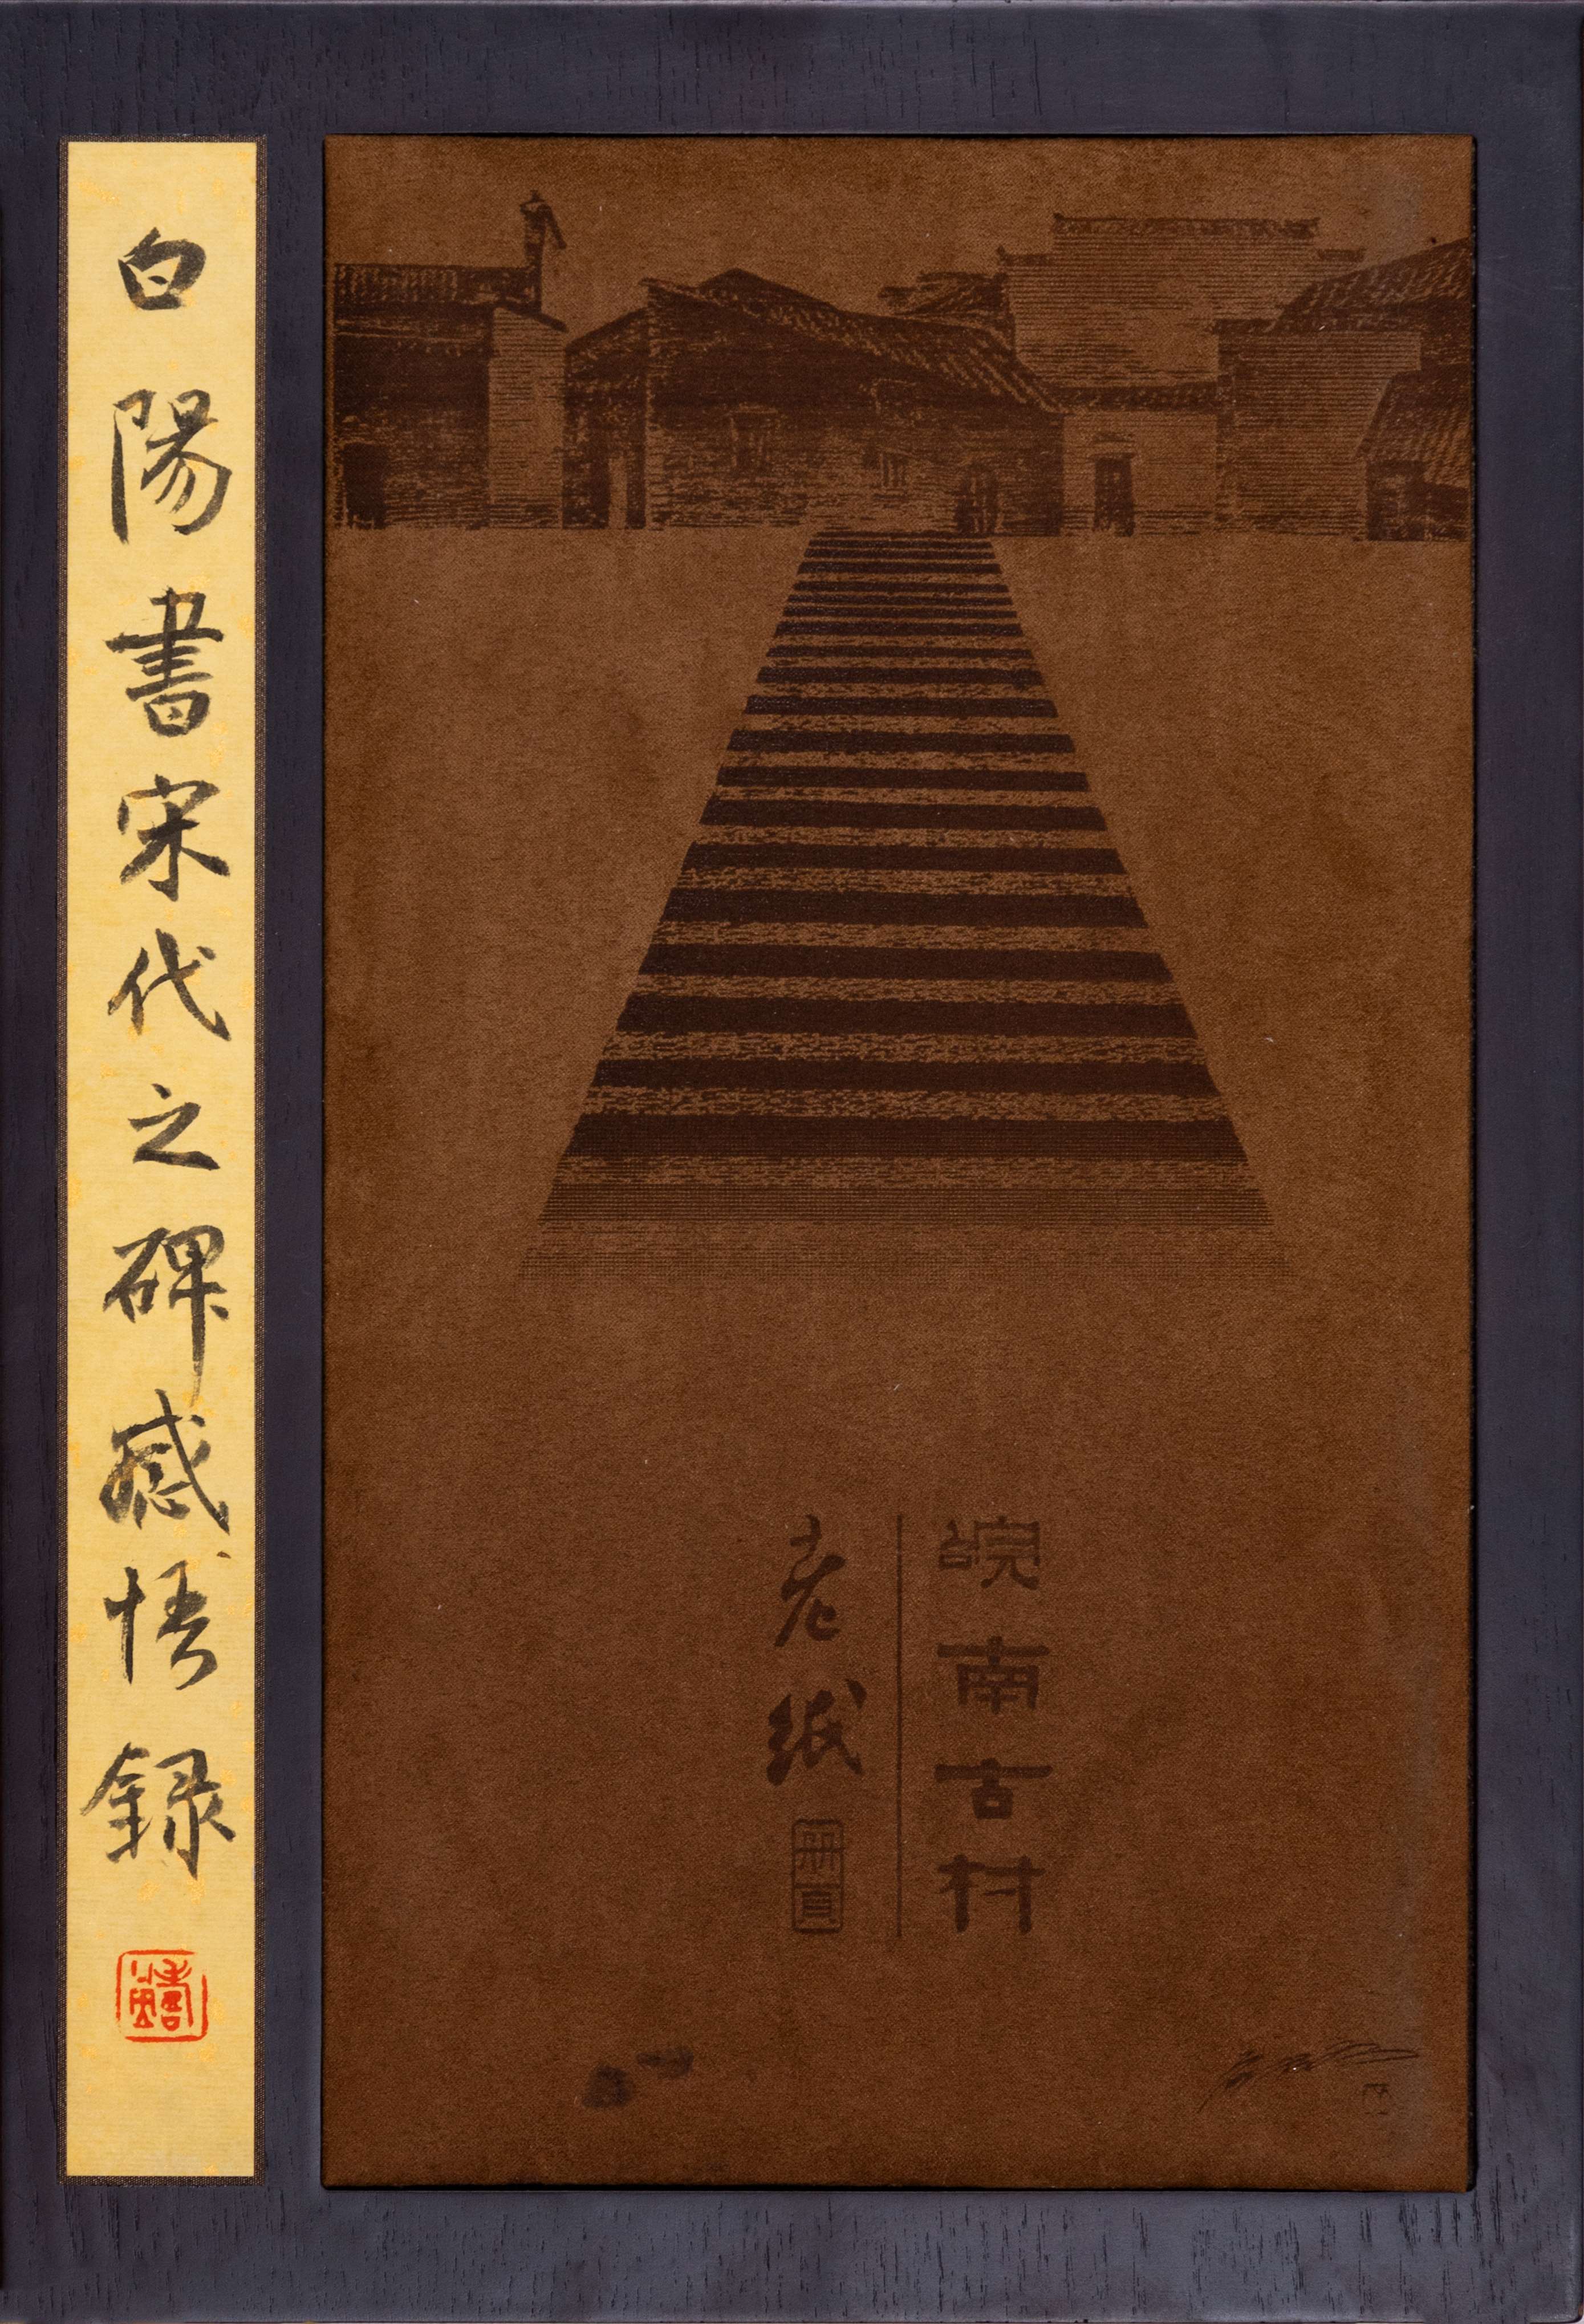 白陽書宋代之碑感悟録
皖南古村
老紙
冊頁